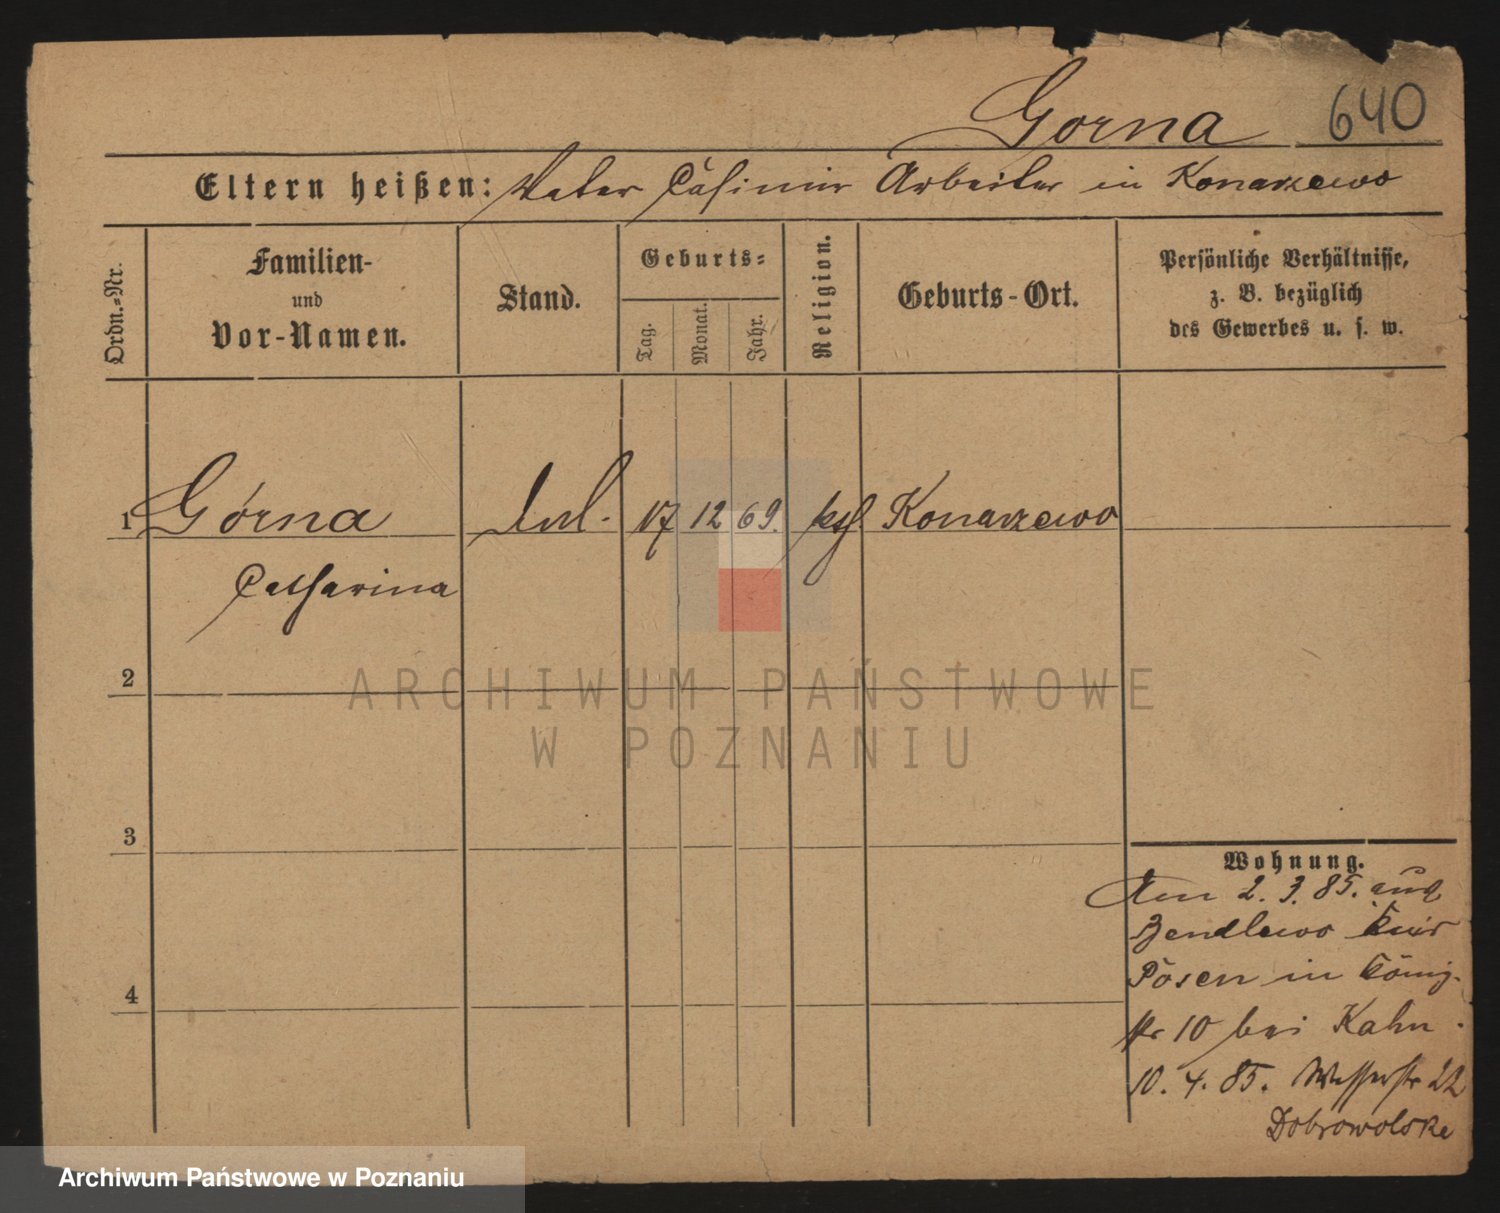 Gorna 640
Eltern heißen: Vater Casimir Arbeiter in Konarzewo
Ordn.-Nr.
Familien-
und
Vor-Namen.
Stand.
Geburts-
Tag.
Monat.
Jahr.
Religion.
Geburts-Ort.
Persönliche Verhältnisse,
z. B. bezüglich
des Gewerbes u. s. w.
1 Górna 17 12 69. Konarzewo
Catharina
2
3
4
Wohnung.
Am 2. 3. 85. aus
Posen in König-
str 10 bei Kahn.
10. 4. 85. Wasserstr 22
Dobrowolske
ARCHIWUM PAŃSTWOWE
W POZNANIU
Archiwum Państwowe w Poznaniu